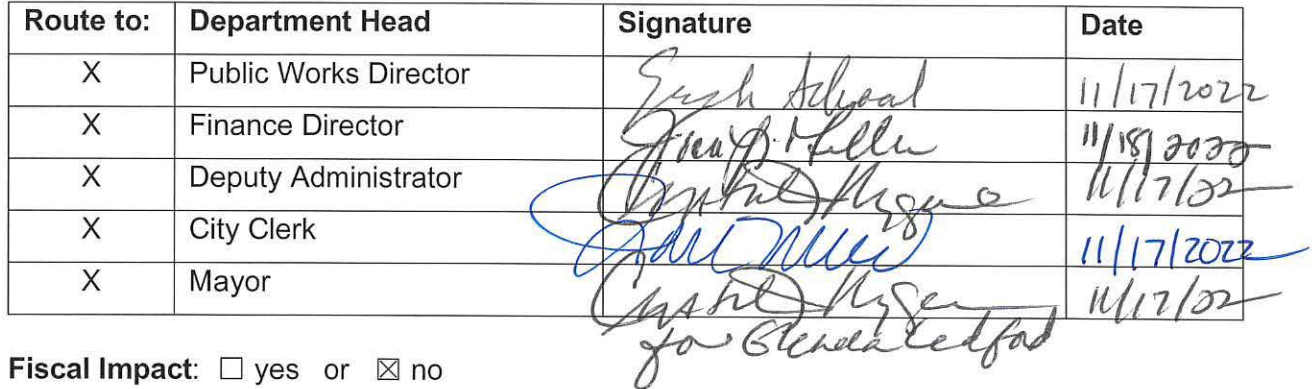 Route to: Department Head Signature Date
X Public Works Director 11/17/2022
X Finance Director 11/18/2022
X Deputy Administrator 11/17/22
X City Clerk 11/17/2022
X Mayor 11/17/22
for Glenda Ledford
Fiscal Impact: ☐ yes or ☒ no